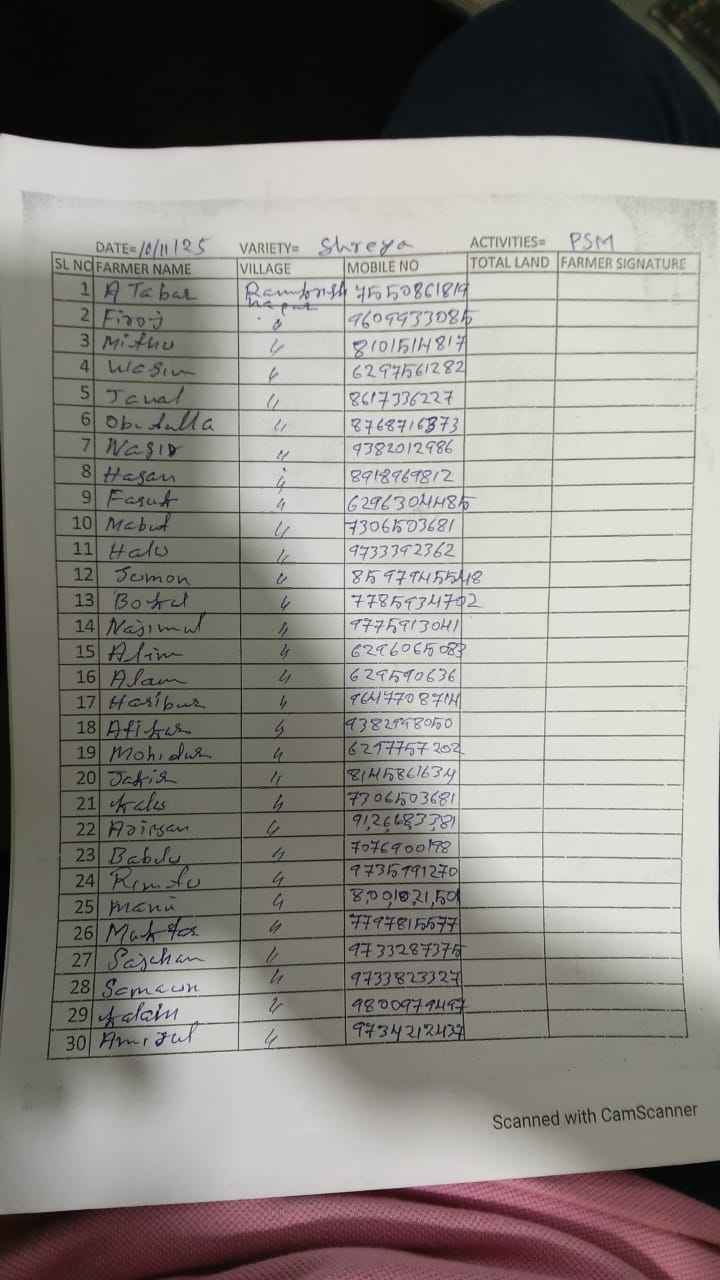 DATE= 10/11/25 VARIETY= Shreya ACTIVITIES= PSM
SL NO FARMER NAME VILLAGE MOBILE NO TOTAL LAND FARMER SIGNATURE
1 A Tabar nagar 7550861819
2 Firoj 〃 9609933085
3 Mithu 〃 8101514817
4 Wasim 〃 6297561282
5 Jamal 〃 8617336227
6 Obidulla 〃 8768716373
7 Nasir 〃 9382012986
8 Hasan 〃 8918969812
9 Faruk 〃 6296304485
10 Mabud 〃 7306503681
11 Halu 〃 9733392362
12 Jumon 〃 8597945548
13 〃 7785934702
14 Najimul 〃 9775913041
15 Alim 〃 6296065083
16 Alam 〃 629590636
17 Haribur 〃 9647708714
18 Atikur 〃 9382998050
19 Mohidur 〃 6297757202
20 Jakir 〃 8145861634
21 Kalu 〃 7306503681
22 〃 9126683381
23 Babلu 〃 7076900198
24 Rintu 〃 9735991270
25 Manu 〃 8001021501
26 Muktar 〃 7797815577
27 Sajahan 〃 9733287375
28 Samaun 〃 9733823327
29 Kalam 〃 9800979497
30 Amirul 〃 9734212437
Scanned with CamScanner